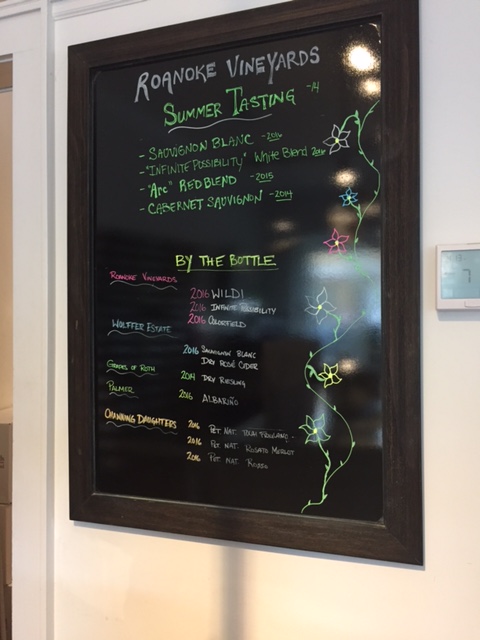 ROANOKE VINEYARDS
SUMMER TASTING -14
- SAUVIGNON BLANC -2016
- "INFINITE POSSIBILITY" White Blend 2016
- "Arc" RED BLEND -2015
- CABERNET SAUVIGNON -2014
BY THE BOTTLE
ROANOKE VINEYARDS
2016 WILD!
2016 INFINITE POSSIBILITY
2016 COLORFIELD
WOLFFER ESTATE
2016 SAUVIGNON BLANC
DRY ROSÉ CIDER
GRAPES OF ROTH
2014 DRY RIESLING
PALMER
2016 ALBARIÑO
CHANNING DAUGHTERS
2016 PET. NAT.
2016 PET. NAT. ROSATO MERLOT
2016 PET. NAT. ROSSO
7